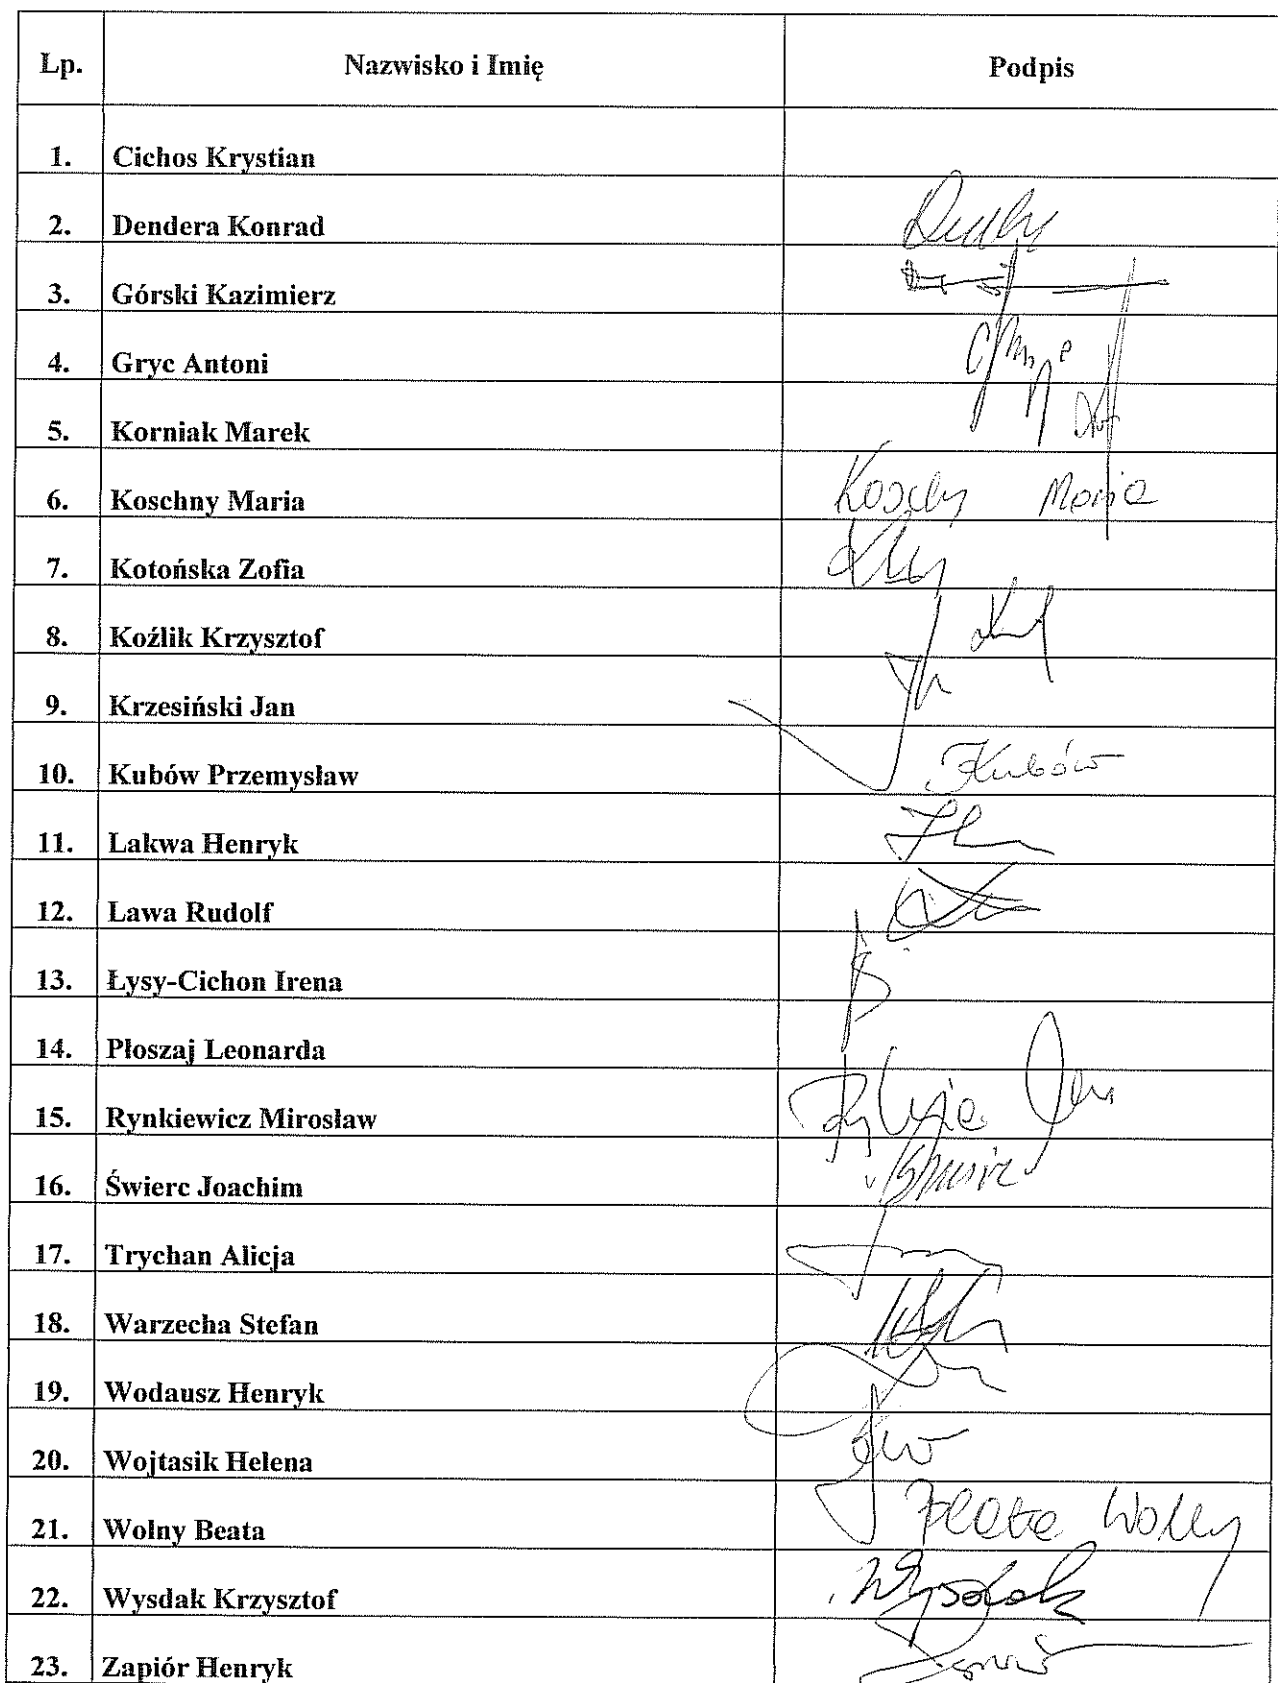 Lp. Nazwisko i Imię Podpis
1. Cichos Krystian
2. Dendera Konrad
3. Górski Kazimierz
4. Gryc Antoni
5. Korniak Marek
6. Koschny Maria Maria
7. Kotońska Zofia
8. Koźlik Krzysztof
9. Krzesiński Jan
10. Kubów Przemysław Kubów
11. Lakwa Henryk
12. Lawa Rudolf
13. Łysy-Cichon Irena
14. Płoszaj Leonarda
15. Rynkiewicz Mirosław
16. Świerc Joachim
17. Trychan Alicja
18. Warzecha Stefan
19. Wodausz Henryk
20. Wojtasik Helena
21. Wolny Beata Beata Wolny
22. Wysdak Krzysztof Wysdak
23. Zapiór Henryk